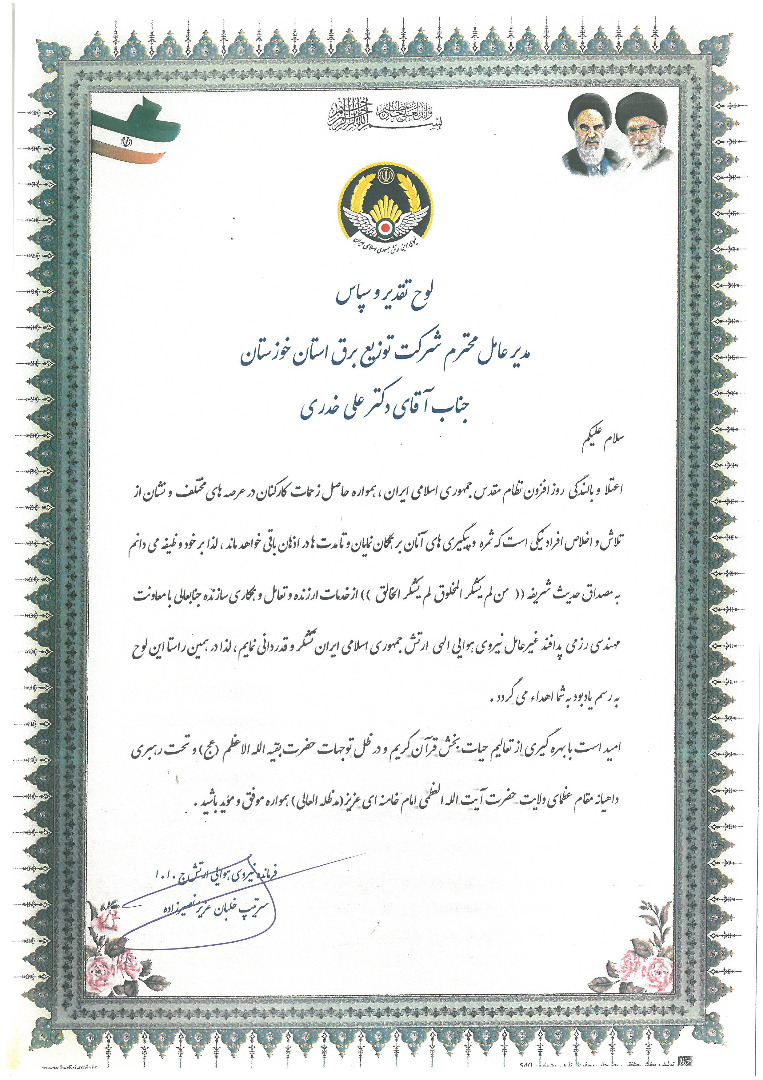 بسم الله الرحمن الرحیم
نیروی هوایی ارتش جمهوری اسلامی ایران
لوح تقدیر و سپاس
مدیر عامل محترم شرکت توزیع برق استان خوزستان
جناب آقای دکتر علی خدری
سلام علیکم
اعتلا و بالندگی روز افزون نظام مقدس جمهوری اسلامی ایران ، همواره حاصل زحمات کارکنان در عرصه های مختلف و نشان از
تلاش و اخلاص افراد نیکی است که ثمره و پیگیری های آنان بر همگان نمایان و تا مدت ها در اذهان باقی خواهد ماند ، لذا بر خود وظیفه می دانم
به مصداق حدیث شریفه (( من لم یشکر المخلوق لم یشکر الخالق )) از خدمات ارزنده و تعامل و همکاری سازنده جنابعالی با معاونت
مهندسی رزمی پدافند غیرعامل نیروی هوایی الهی ارتش جمهوری اسلامی ایران تشکر و قدردانی نمایم ، لذا در همین راستا این لوح
به رسم یادبود به شما اهداء می گردد .
امید است با بهره گیری از تعالیم حیات بخش قرآن کریم و در ظل توجهات حضرت بقیه الله الاعظم (عج) و تحت رهبری
داهیانه مقام عظمای ولایت حضرت آیت الله العظمی امام خامنه ای عزیز (مدظله العالی) همواره موفق و مؤید باشید .
فرمانده نیروی هوایی ارتش ج.ا.ا
سرتیپ خلبان عزیز نصیرزاده